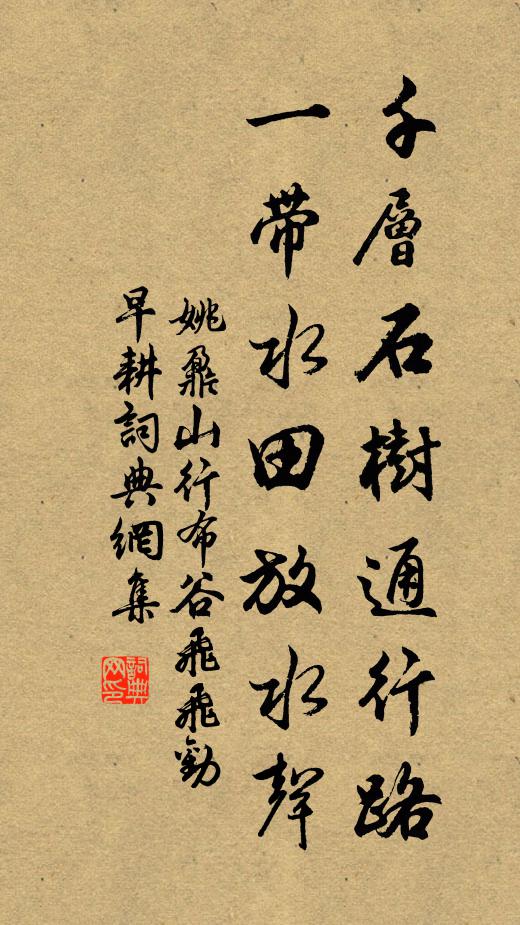 千層石樹通行路
一帶水田放水聲
姚鼐山行布谷飛飛勸
早耕詞典網集
詞典
网印